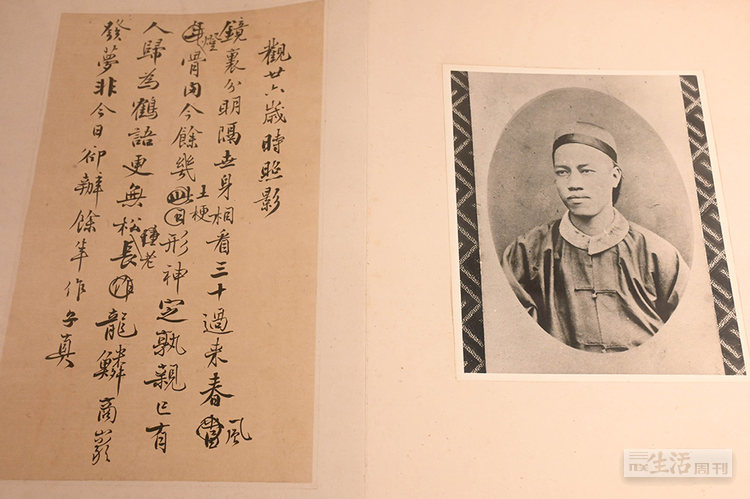 觀廿六歲時照影
鏡裏分明隔世身相看三十過來春風
燈骨肉今餘幾此日土梗形神定孰親已有
人歸為鶴語更無松長作種老龍鱗商巖
發夢非今日卻辦餘年作子真
生活周刊